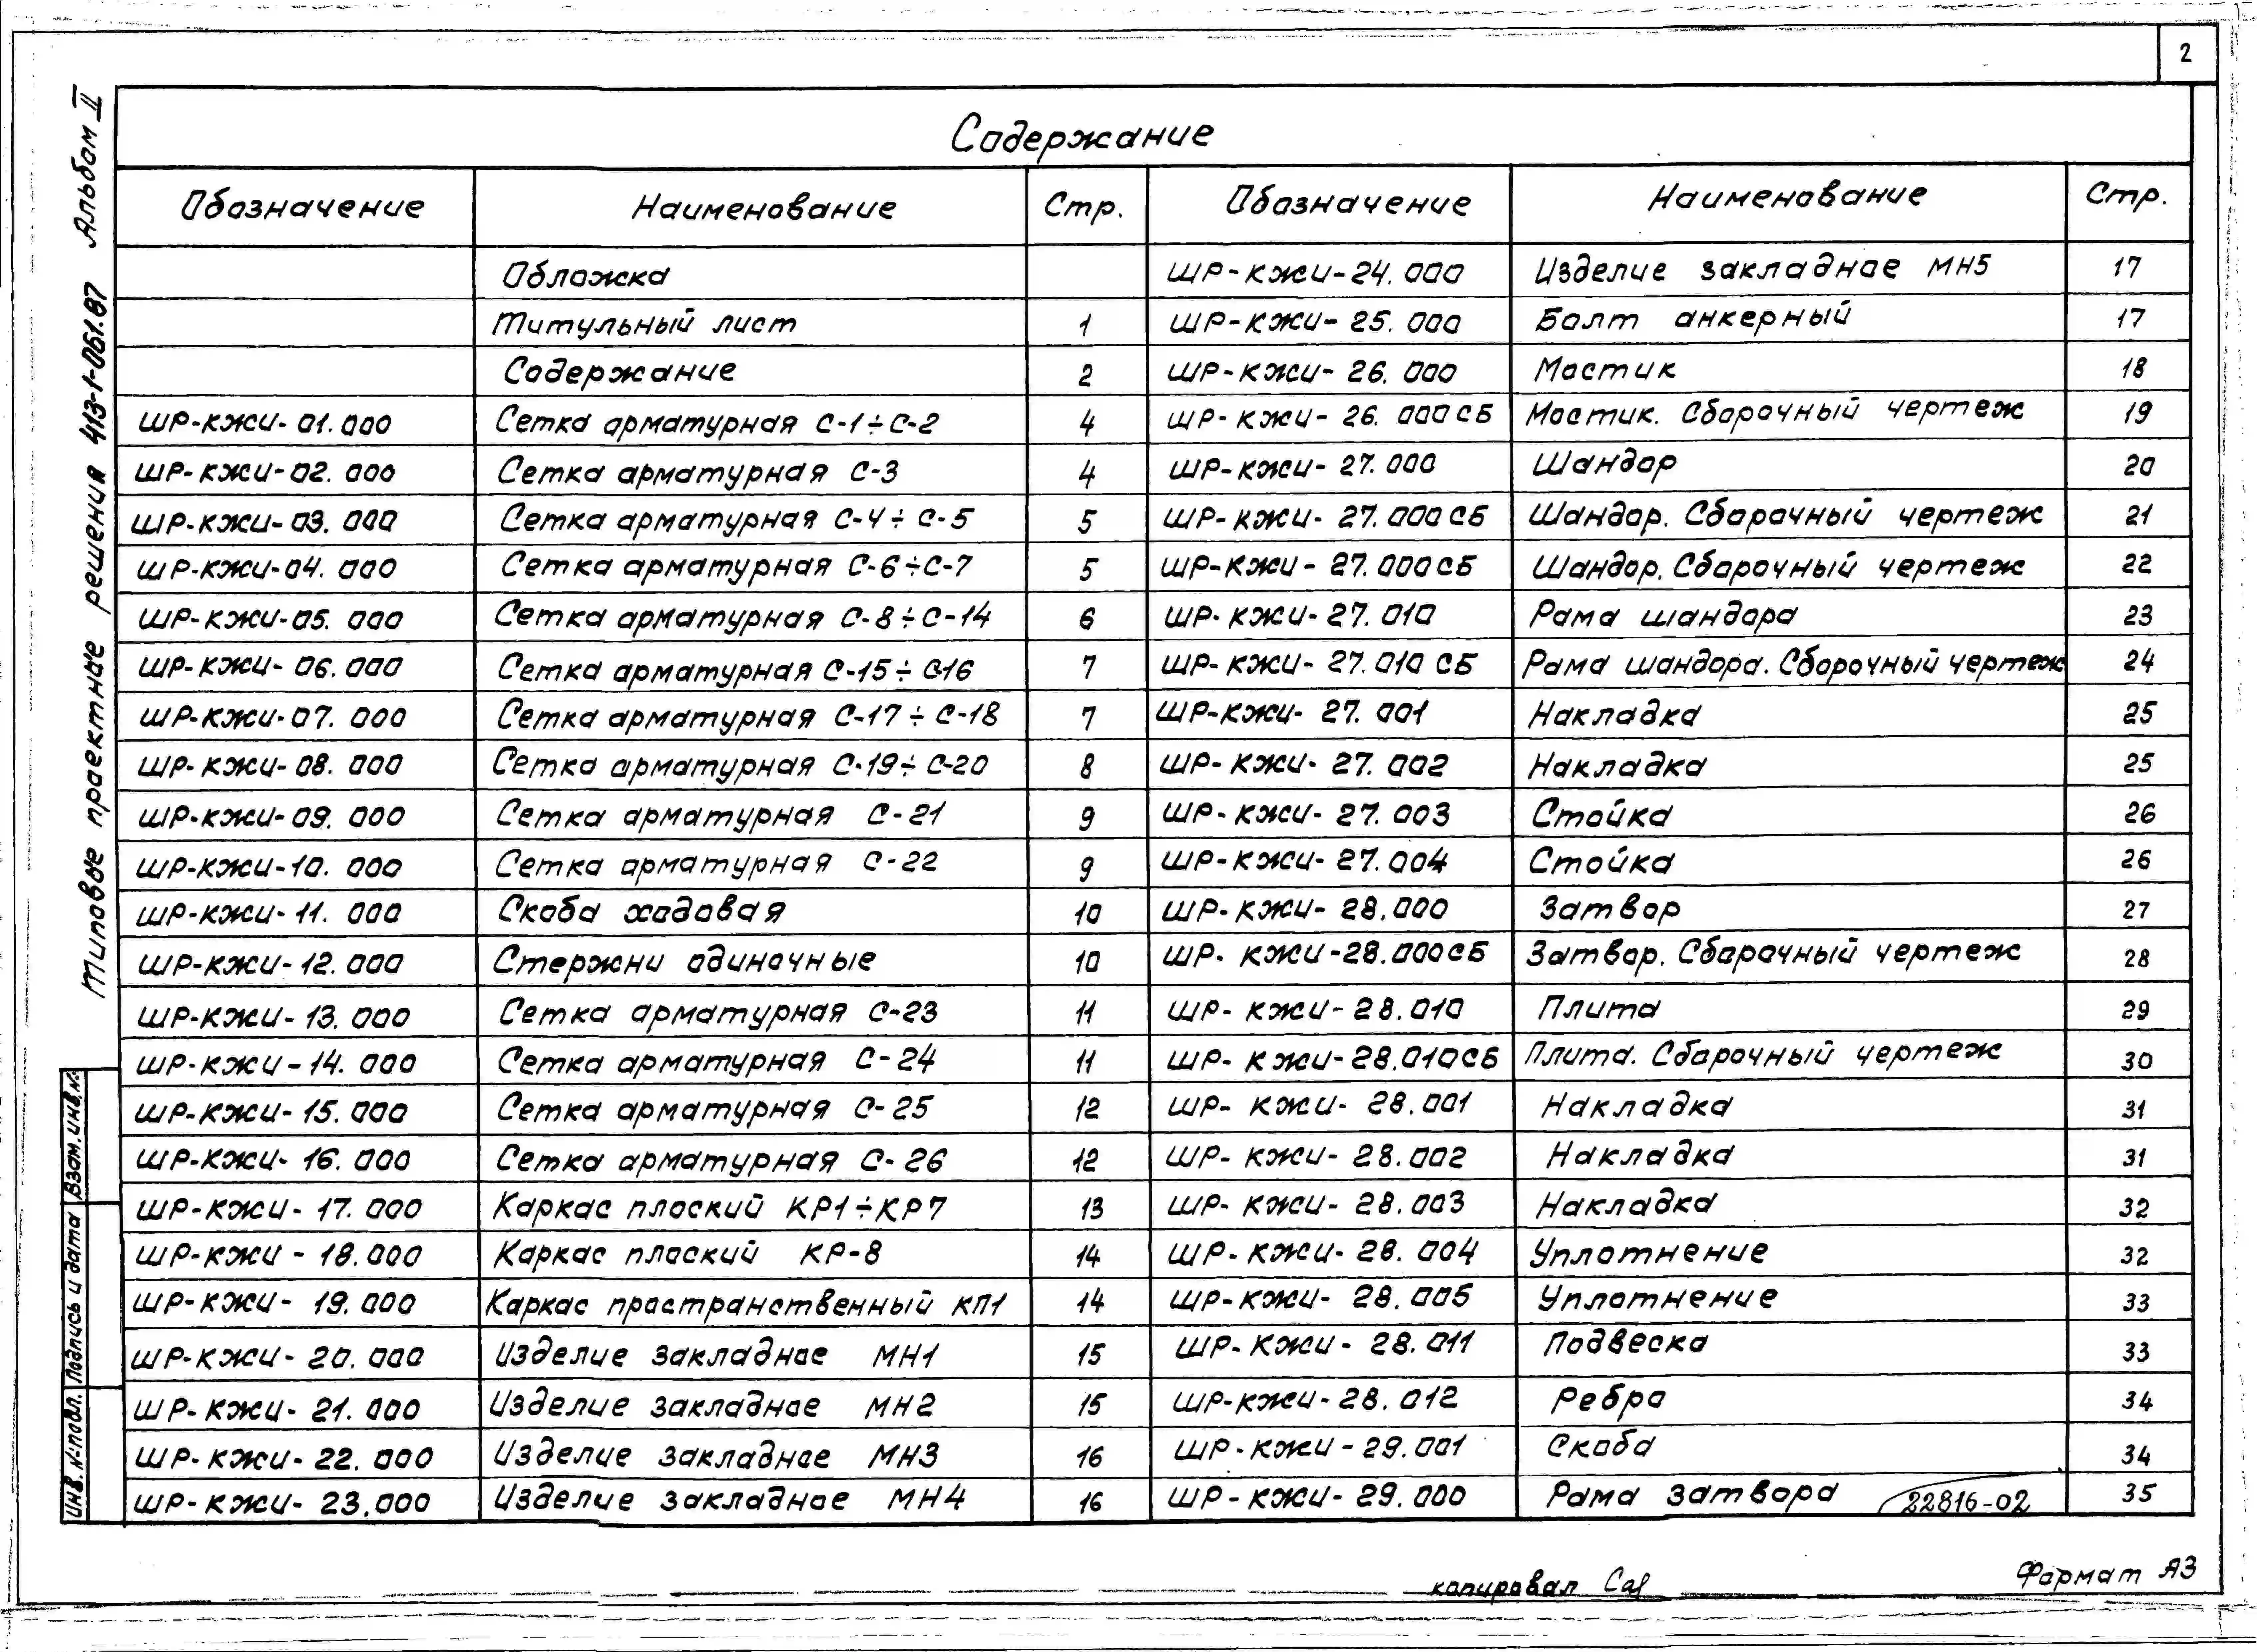 2
Типовые проектные решения 413-1-061.87 Альбом II
Содержание
Обозначение | Наименование | Стр. | Обозначение | Наименование | Стр.
Обложка | ШР-КЖИ-24.000 | Изделие закладное МН5 | 17
Титульный лист | 1 | ШР-КЖИ-25.000 | Болт анкерный | 17
Содержание | 2 | ШР-КЖИ-26.000 | Мостик | 18
ШР-КЖИ-01.000 | Сетка арматурная С-1÷С-2 | 4 | ШР-КЖИ-26.000СБ | Мостик. Сборочный чертеж | 19
ШР-КЖИ-02.000 | Сетка арматурная С-3 | 4 | ШР-КЖИ-27.000 | Шандор | 20
ШР-КЖИ-03.000 | Сетка арматурная С-4÷С-5 | 5 | ШР-КЖИ-27.000СБ | Шандор. Сборочный чертеж | 21
ШР-КЖИ-04.000 | Сетка арматурная С-6÷С-7 | 5 | ШР-КЖИ-27.000СБ | Шандор. Сборочный чертеж | 22
ШР-КЖИ-05.000 | Сетка арматурная С-8÷С-14 | 6 | ШР-КЖИ-27.010 | Рама шандора | 23
ШР-КЖИ-06.000 | Сетка арматурная С-15÷С-16 | 7 | ШР-КЖИ-27.010 СБ | Рама шандора. Сборочный чертеж | 24
ШР-КЖИ-07.000 | Сетка арматурная С-17÷С-18 | 7 | ШР-КЖИ-27.001 | Накладка | 25
ШР-КЖИ-08.000 | Сетка арматурная С-19÷С-20 | 8 | ШР-КЖИ-27.002 | Накладка | 25
ШР-КЖИ-09.000 | Сетка арматурная С-21 | 9 | ШР-КЖИ-27.003 | Стойка | 26
ШР-КЖИ-10.000 | Сетка арматурная С-22 | 9 | ШР-КЖИ-27.004 | Стойка | 26
ШР-КЖИ-11.000 | Скоба ходовая | 10 | ШР-КЖИ-28.000 | Затвор | 27
ШР-КЖИ-12.000 | Стержни одиночные | 10 | ШР-КЖИ-28.000СБ | Затвор. Сборочный чертеж | 28
ШР-КЖИ-13.000 | Сетка арматурная С-23 | 11 | ШР-КЖИ-28.010 | Плита | 29
ШР-КЖИ-14.000 | Сетка арматурная С-24 | 11 | ШР-КЖИ-28.010СБ | Плита. Сборочный чертеж | 30
ШР-КЖИ-15.000 | Сетка арматурная С-25 | 12 | ШР-КЖИ-28.001 | Накладка | 31
ШР-КЖИ-16.000 | Сетка арматурная С-26 | 12 | ШР-КЖИ-28.002 | Накладка | 31
ШР-КЖИ-17.000 | Каркас плоский КР1÷КР7 | 13 | ШР-КЖИ-28.003 | Накладка | 32
ШР-КЖИ-18.000 | Каркас плоский КР-8 | 14 | ШР-КЖИ-28.004 | Уплотнение | 32
ШР-КЖИ-19.000 | Каркас пространственный КП1 | 14 | ШР-КЖИ-28.005 | Уплотнение | 33
ШР-КЖИ-20.000 | Изделие закладное МН1 | 15 | ШР-КЖИ-28.011 | Подвеска | 33
ШР-КЖИ-21.000 | Изделие закладное МН2 | 15 | ШР-КЖИ-28.012 | Ребра | 34
ШР-КЖИ-22.000 | Изделие закладное МН3 | 16 | ШР-КЖИ-29.001 | Скоба | 34
ШР-КЖИ-23.000 | Изделие закладное МН4 | 16 | ШР-КЖИ-29.000 | Рама затвора | 35
22816-02
Взам. инв. №
Подпись и дата
Инв. № подл.
копировал
Формат А3